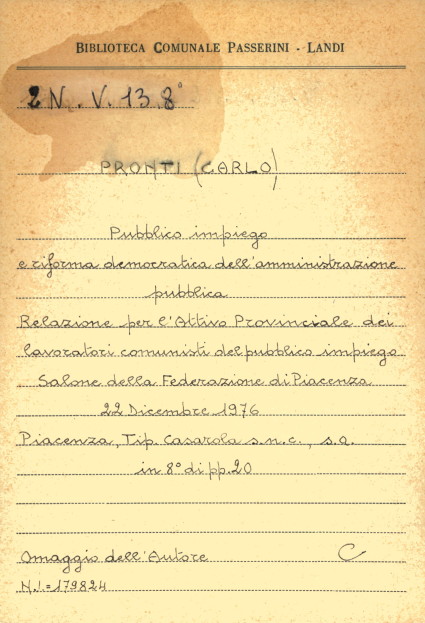 BIBLIOTECA COMUNALE PASSERINI - LANDI
2 N. V. 13.8°
PRONTI (CARLO)
Pubblico impiego
e riforma democratica dell'amministrazione
pubblica
Relazione per l'Attivo Provinciale dei
lavoratori comunisti del pubblico impiego
Salone della Federazione di Piacenza
22 Dicembre 1976
Piacenza, Tip. Casarola s.n.c., s.a.
in 8° di pp. 20
Omaggio dell'Autore C
N.I.=179824